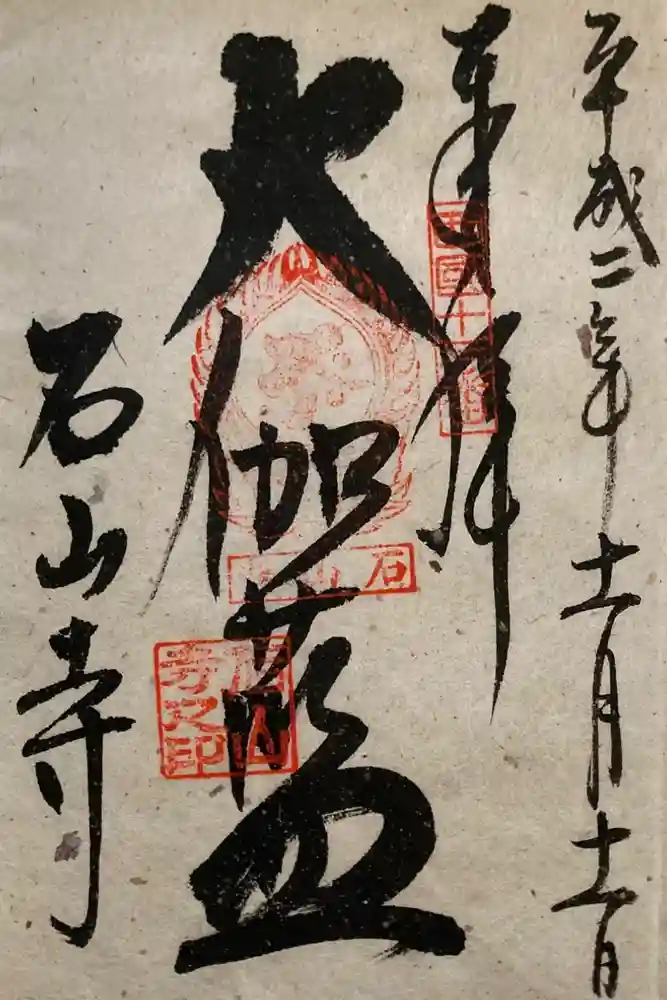 平成二年十一月十一日
奉拝
西國十三番
大伽藍
石山寺
石山寺之印
石山寺